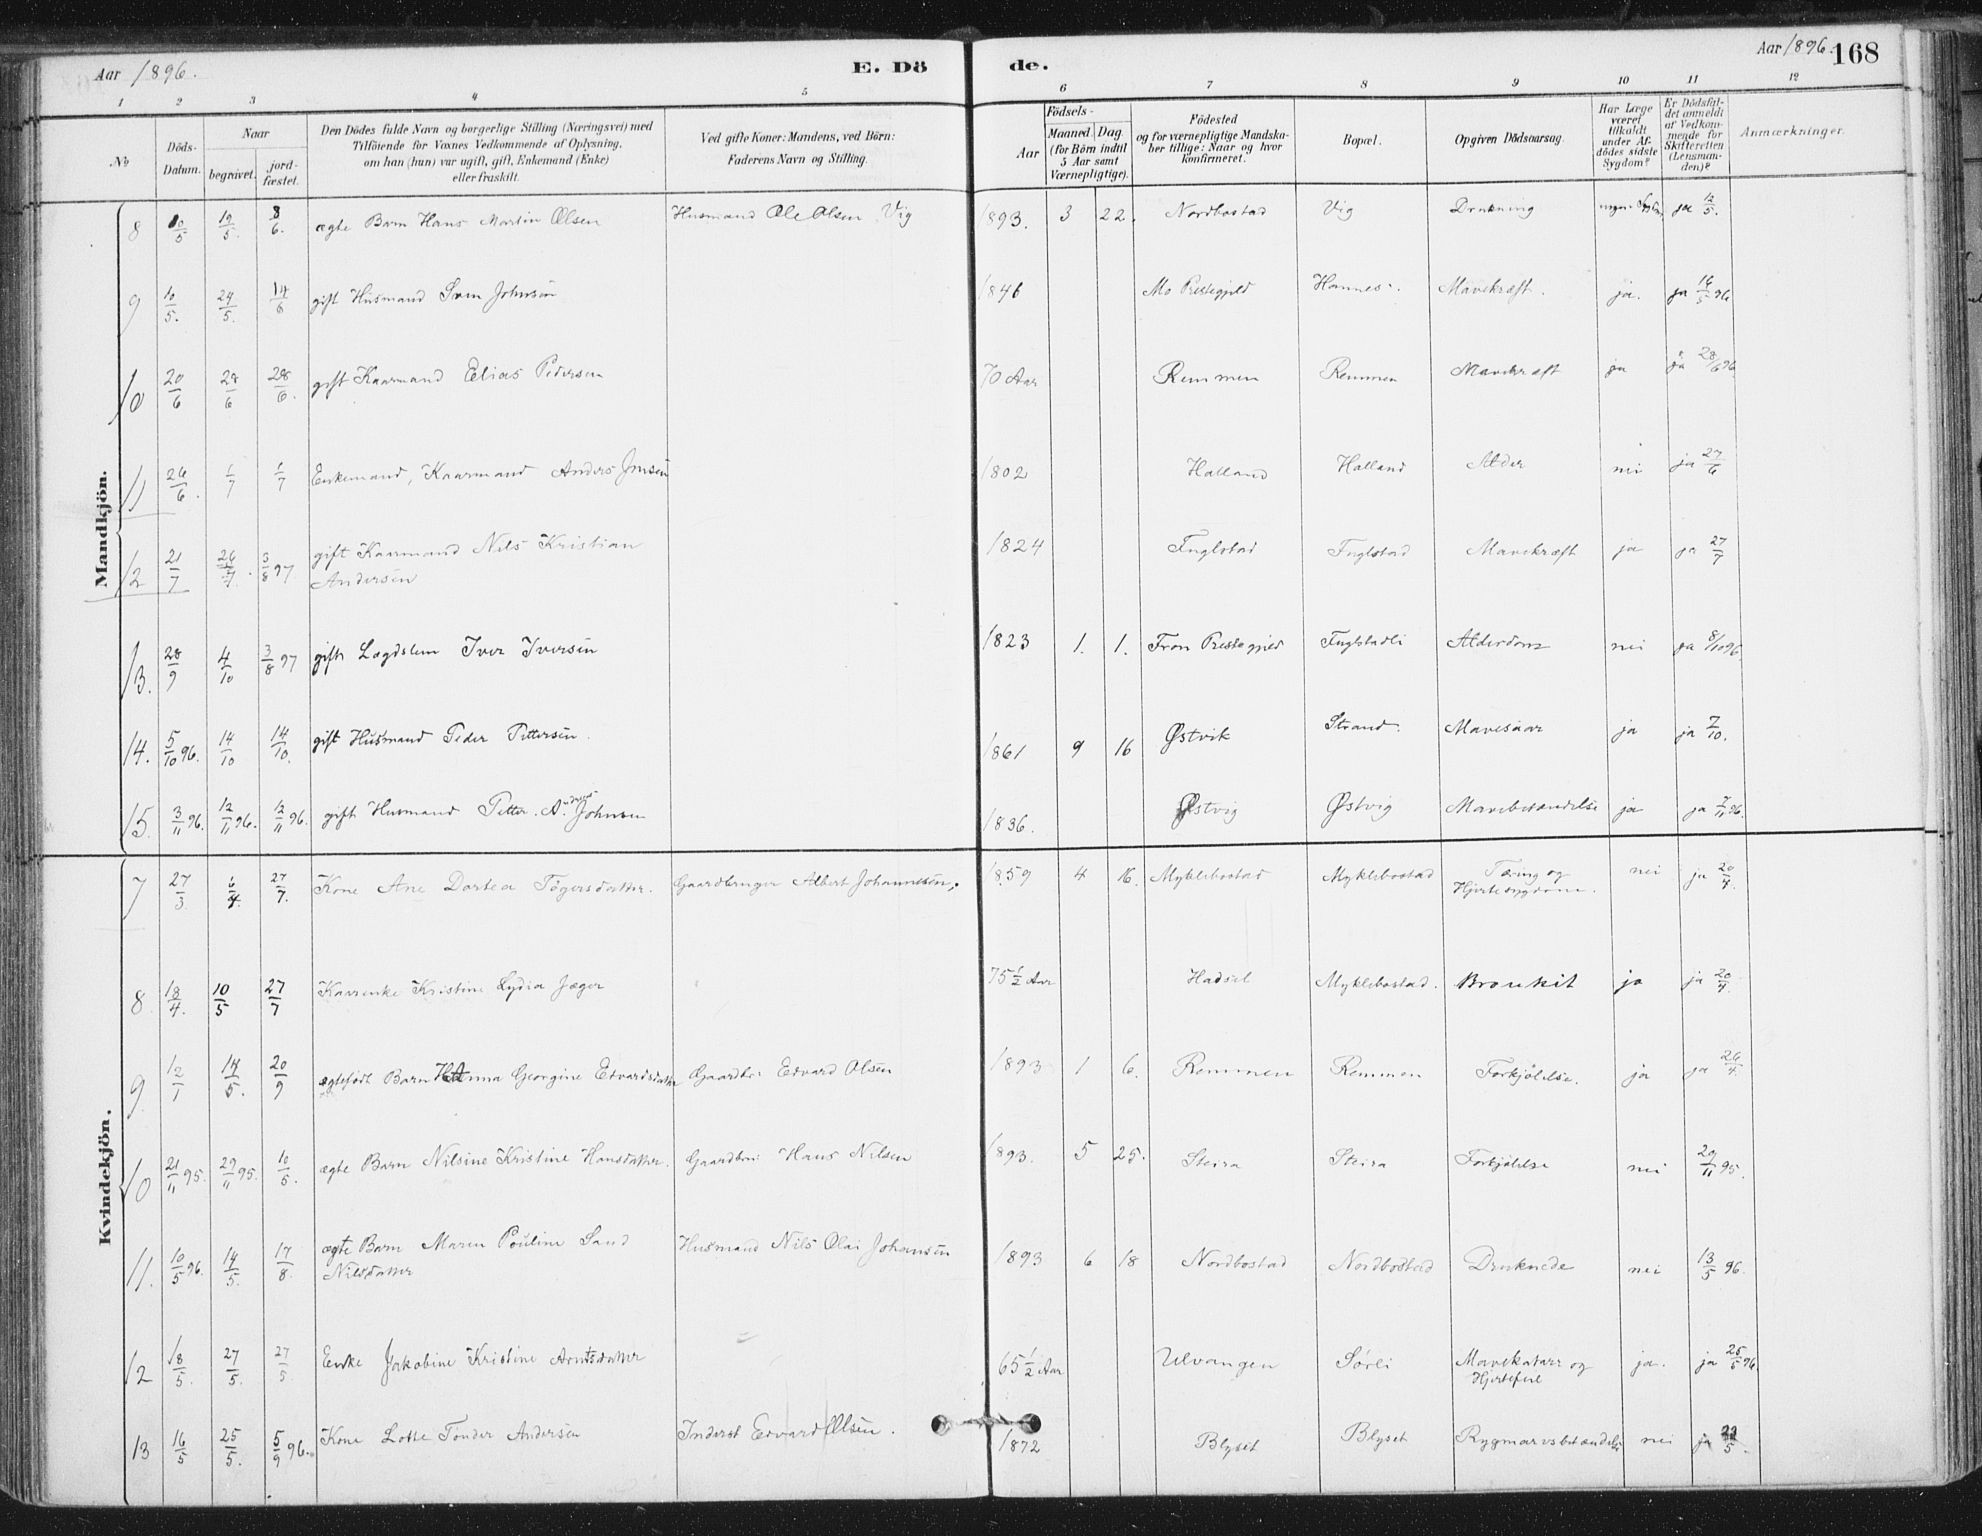 Aar 1896. E. Dö de. Aar 1896. 168
1 2 3 4 5 6 7 8 9 10 11 12
No Döds-Datum. Naar begravet. jordfæstet. Den Dödes fulde Navn og borgerlige Stilling (Næringsvei) med Tilföiende for Voxnes Vedkommende af Oplysning, om han (hun) var ugift, gift, Enkemand (Enke) eller fraskilt. Ved gifte Koner: Mandens, ved Börn: Faderens Navn og Stilling. Födsels- Aar Maaned Dag (for Börn indtil 5 Aar samt Værnepligtige). Födested og for værnepligtige Mandskaber tillige: Naar og hvor konfirmeret. Bopæl. Opgiven Dödsaarsag. Har Læge været tilkaldt under Afdödes sidste Sygdom? Er Dödsfaldet anmeldt af Vedkommende for Skifteretten (Lensmanden)? Anmærkninger.
Mandkjön.
8 10/5 19/5. 8/6. ægte Barn Hans Martin Olsen Husmand Ole Olsen Vig 1893. 3 22. Nordbostad Vig Drukning ingen ja 12/5.
9 10/5. 24/5. 14/6 gift Husmand Sven Johnsen 1846 Mo Prestegjeld Hannes. Mavekræft. ja. ja 16/5 96
10 20/6 28/6 28/6. gift Kaarmand Elias Pedersen 70 Aar Remmen Remmen Mavekræft ja ja 28/6 96
11 26/6. 1/7 1/7 Enkemand, Kaarmand Anders Jensen 1802 Halland Halland Alder nei ja 27/6
12 21/7 26/7. 3/8 97 gift Kaarmand Nils Kristian Andersen 1824 Fuglstad Fuglstad Mavekræft ja ja 27/7
13. 28/9 4/10 3/8 97 gift Lægdslem Iver Iversen 1823 1. 1. Fron Prestegjeld Fuglstadli Alderdom nei ja 8/10 96.
14. 5/10 96. 14/10 14/10. gift Husmand Peder Pettersen. 1861 9 16 Østvik Strand. Mavesaar ja ja 7/10.
15. 3/11 96. 12/11 96. 12/11 96. gift Husmand Petter A. Johnsen 1836. Østvig Østvig Mavebetændelse ja ja 7/11 96.
Kvindekjön.
7 27/3 6/4 27/7. Kone Ane Dortea Tögersdatter. Gaardbruger Albert Johannesen. 1859 4 16. Myklebostad Myklebostad Tæring og Hjertesygdom. nei ja 20/4.
8 18/4. 10/5 27/7 Kaarenke Kristine Lydia Jæger 75 1/2 Aar Hadsel Myklebostad. Bronkit ja ja 20/4.
9. 12/1 14/5. 20/9 ægtefödt Barn Hanna Georgine Edvardsdatter Gaardbr: Edvard Olsen 1893 1 6. Remmen Remmen Forkjölelse. ja ja 26/4
10 21/11 95. 29/11 95. 10/5. ægte Barn Nilsine Kristine Hansdatter. Gaardbr: Hans Nilsen 1893. 5 25. Steira Steira Forkjölelse nei 29/11 95.
11. 10/5 96. 14/5. 17/8. ægte Barn Maren Pouline Sand Nilsdatter Husmand Nils Olai Johansen 1893 6 18 Nordbostad Nordbostad Druknede nei 13/5 96.
12 18/5. 27/5. 27/5 Enke Jakobine Kristine Arntsdatter 65 1/2 Aar Ulvangen Sørli Mavekatarr og Hjertefeil ja. ja 25/5 96.
13 16/5 25/5. 5/9 96. Kone Lotte Tönder Andersen Inderst Edvard Olsen. 1872 Blyset Blyset Rygmarvsbetændelse nei ja 22/5.